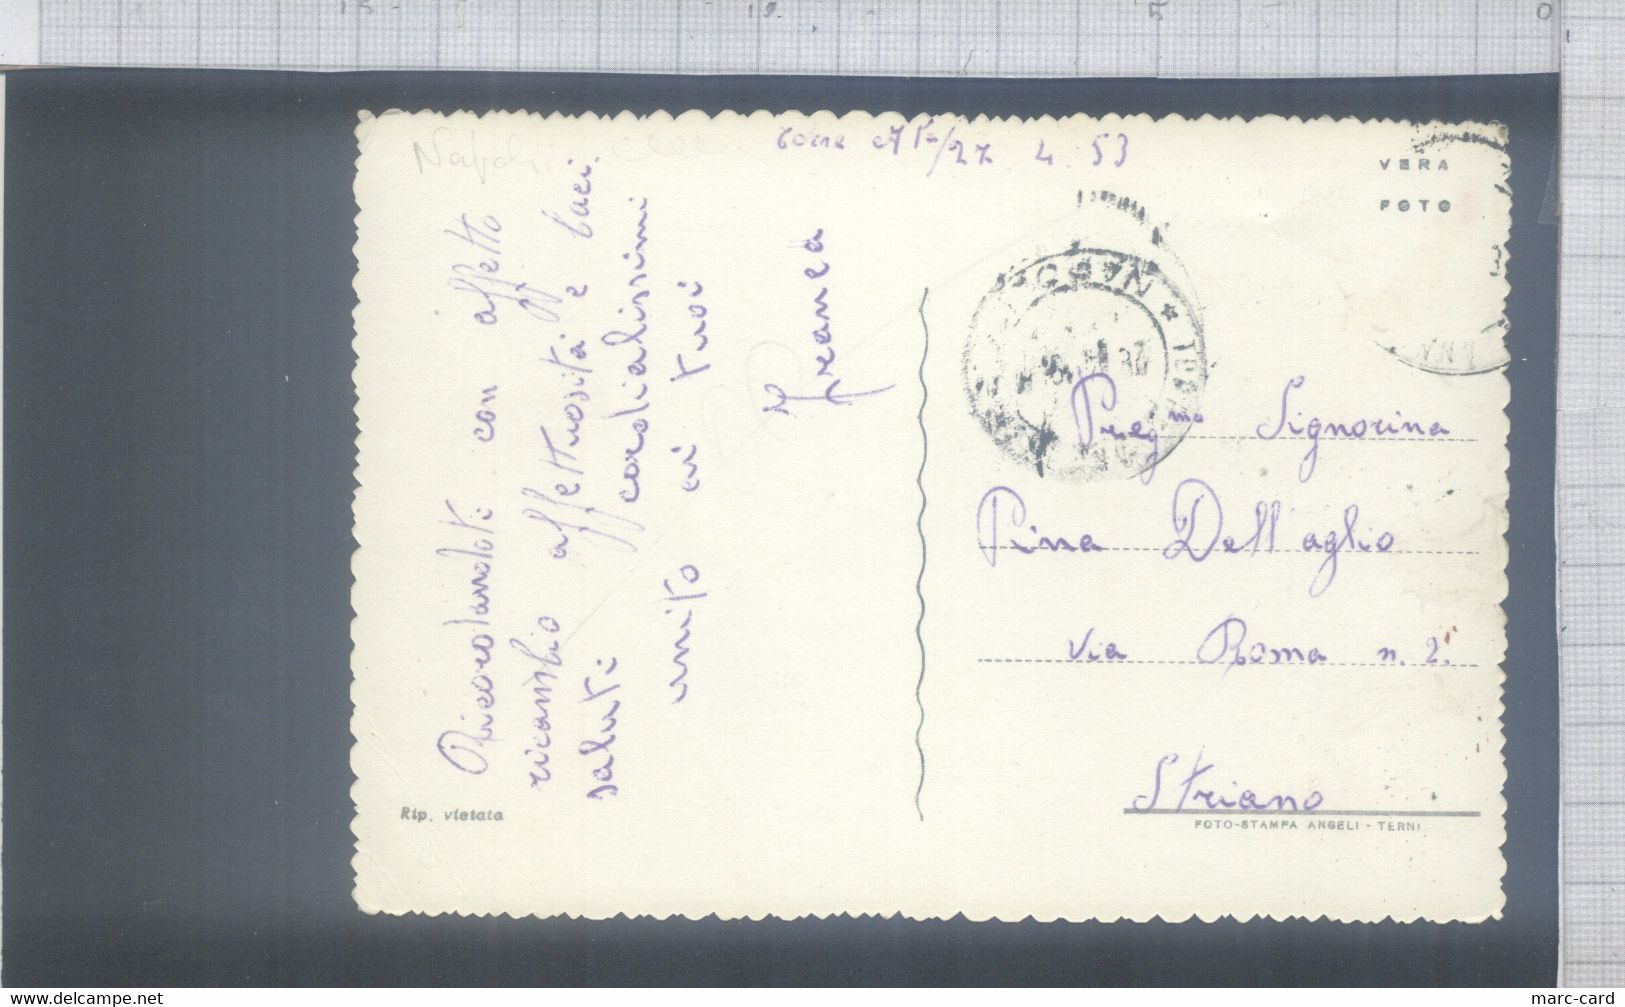 Napoli
Torre A/ta/27 4 53
VERA
FOTO
Ricordandoti con affetto
ricambio affettuosità e baci.
saluti cordialissimi
unito ai tuoi
Franca
NAPOLI
Preg.ma Signorina
Pina Dell'aglio
via Roma n. 2.
Striano
Rip. vietata
FOTO-STAMPA ANGELI - TERNI
15 10 5 0
www.delcampe.net
marc-card